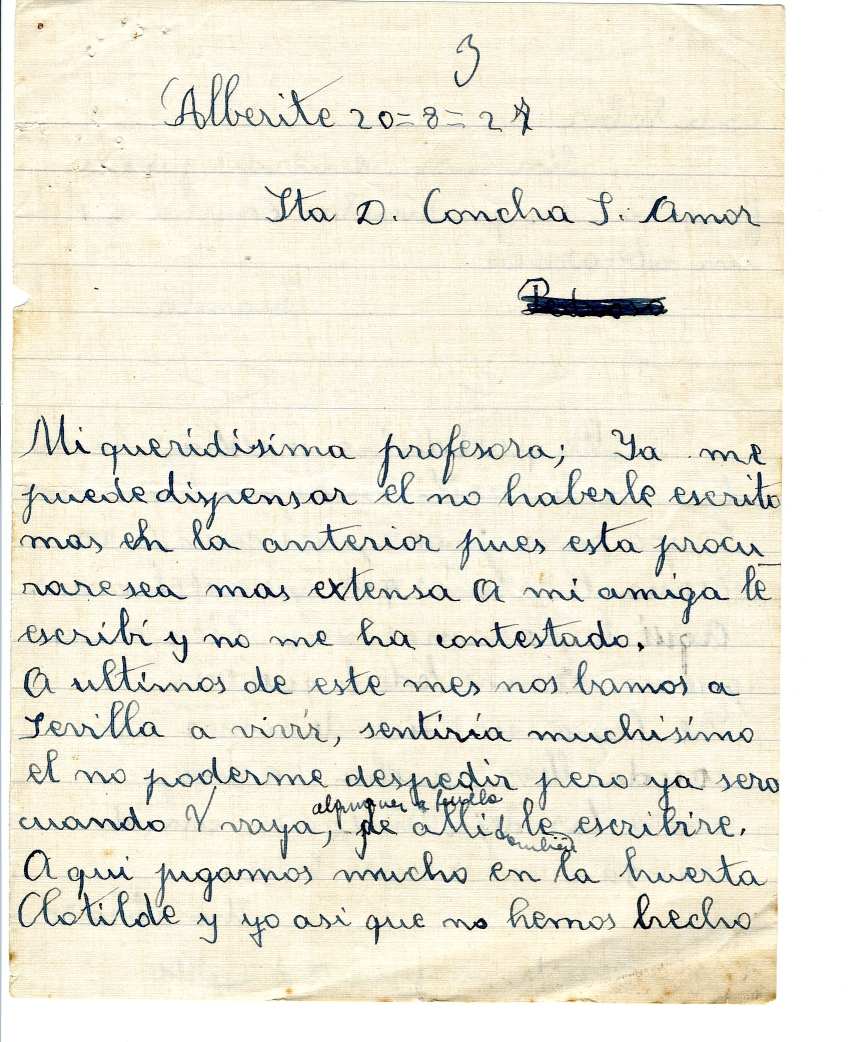 3
Alberite 20=8=27
Sta D. Concha S. Amor
Mi queridísima profesora; Ya me
puede dispensar el no haberle escrito
mas en la anterior pues esta procu_
rare sea mas extensa A mi amiga le
escribí y no me ha contestado.
A ultimos de este mes nos bamos a
Sevilla a vivir, sentiría muchísimo
el no poderme despedir pero ya sera
cuando V vaya, de alli le escribire.
tambien
Aqui jugamos mucho en la huerta
Clotilde y yo asi que no hemos hecho